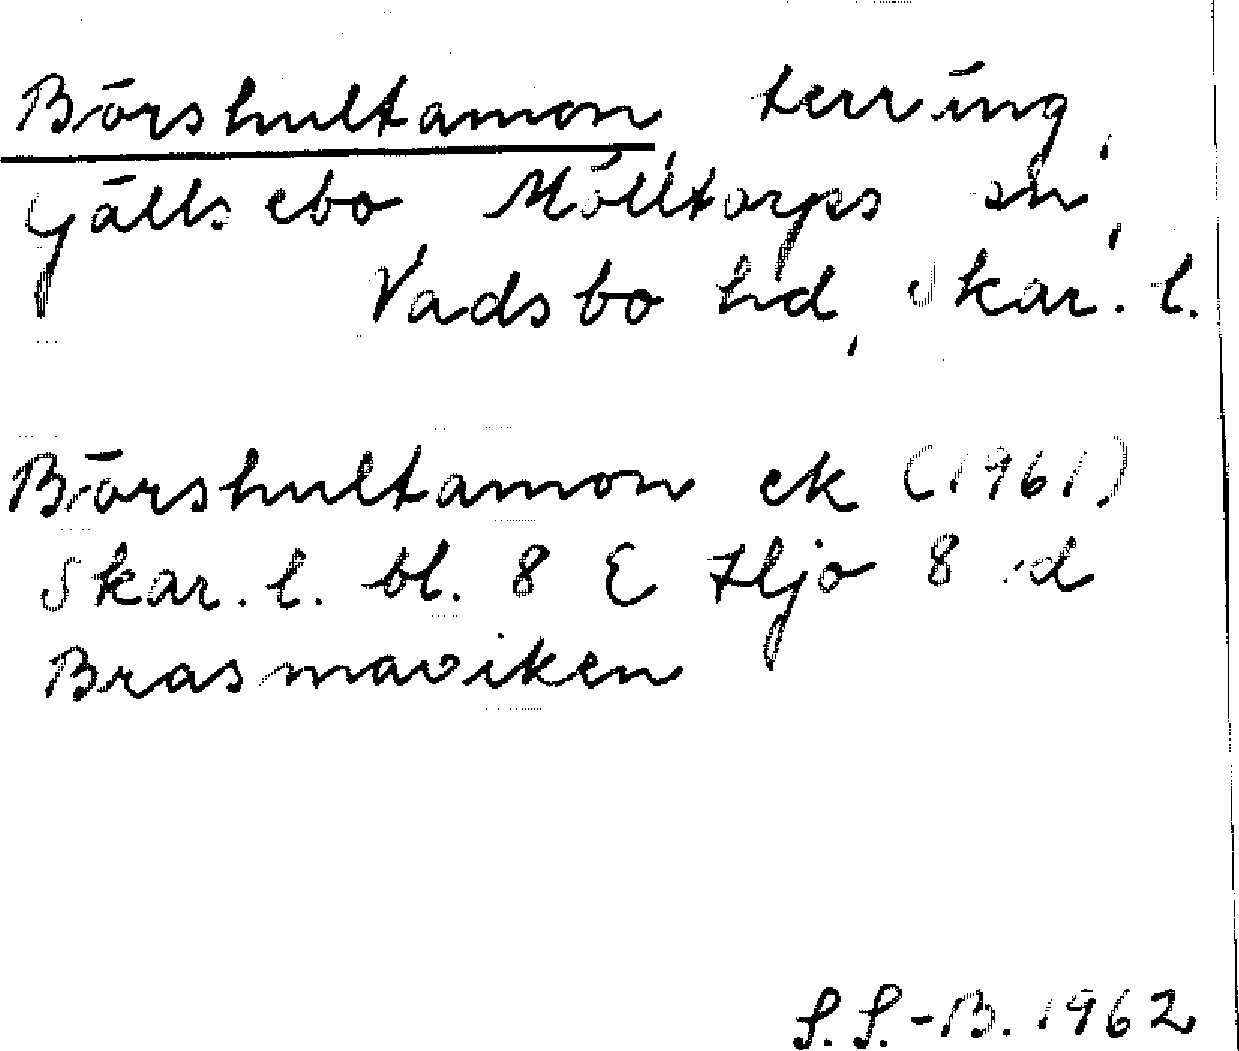 Börshultamon, terräng,
Gällsebo Mölltorps sn,
Vadsbo hd, Skar. l.
Börshultamon ek (1961)
Skar. l. bl. 8 E Hjo 8 d
Brasmaviken
S.S.-B. 1962